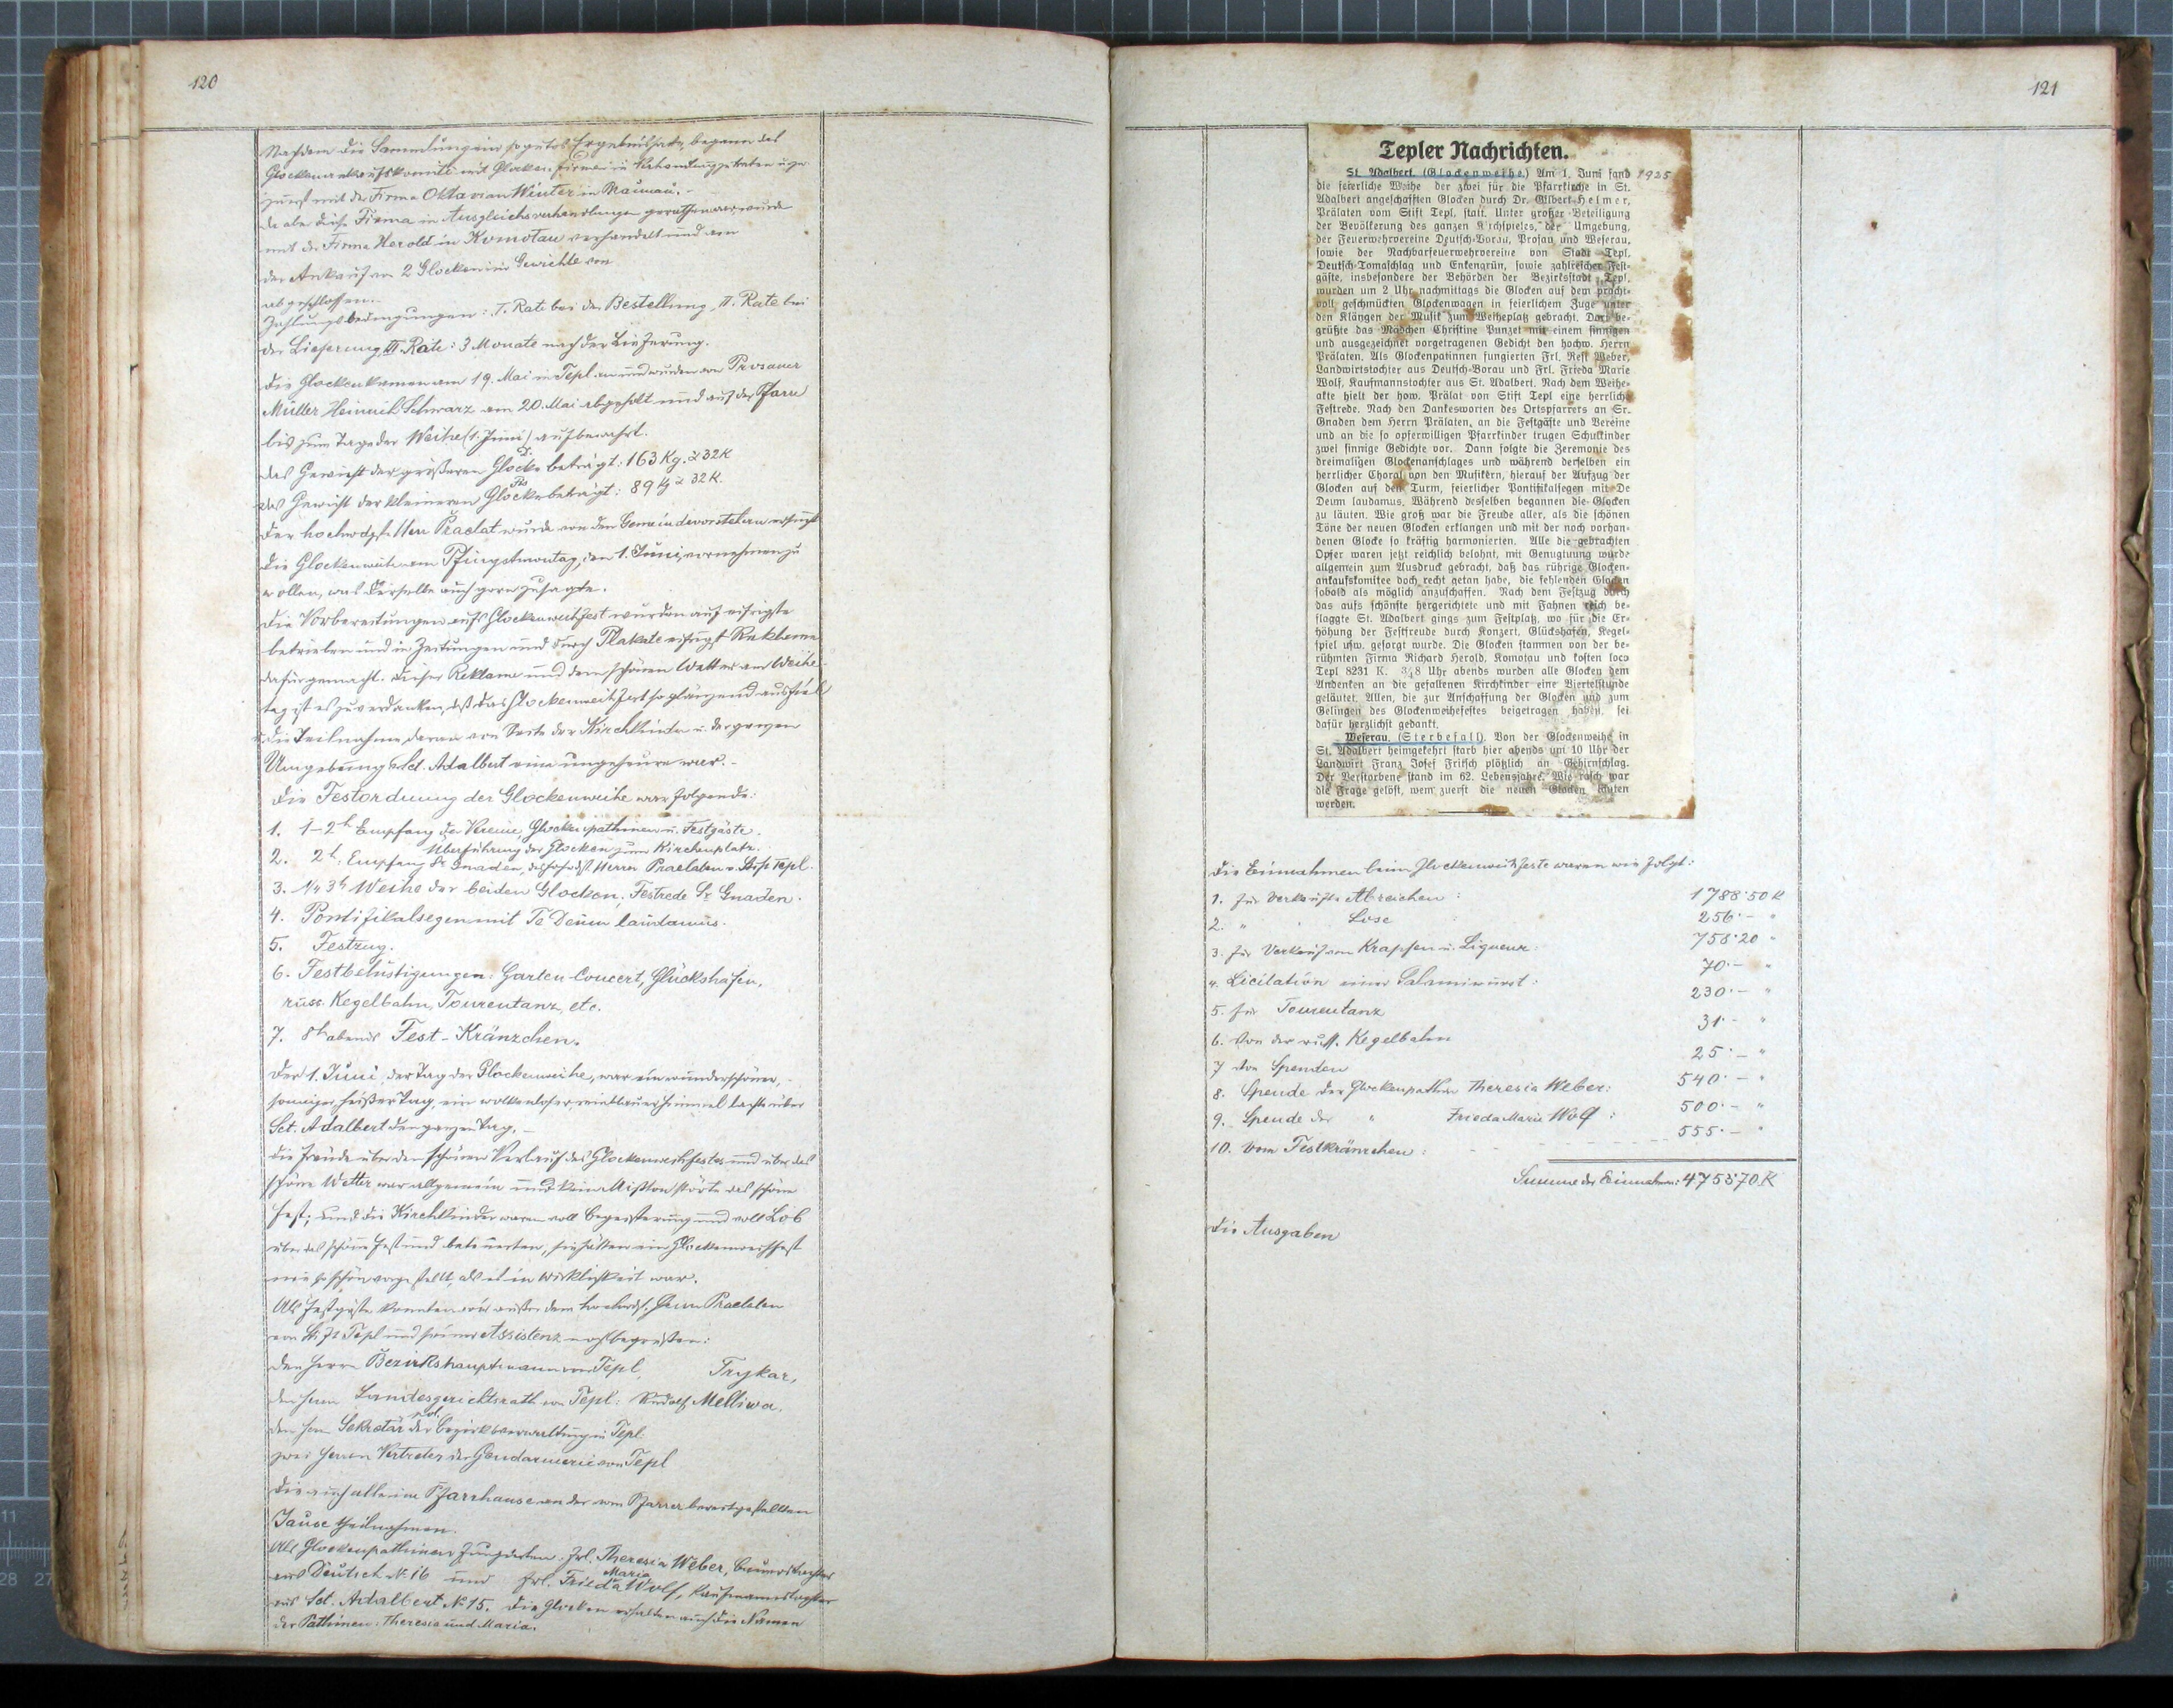 120
Nachdem die Sammlung ein so gutes Ergebnis hatte, begann das
Glockenankaufskomité mit Glockenfirmen in Verhandlung zu treten u. zw.
zuerst mit der Firma Oktavian Winter in Braunau. -
da aber diese Firma in Ausgleichsverhandlungen gerathen war wurde
mit der Firma Herold in Komotau verhandelt und von
der Ankauf von 2 Glocken im Gewichte von
abgeschlossen. -
Zahlungsbedingungen: I. Rate bei der Bestellung, II. Rate bei
der Lieferung, III. Rate: 3 Monate nach der Lieferung.
Die Glocken kamen am 19. Mai in Tepl an und wurden vom Prosauer
Müller Heinrich Schwarz am 20. Mai abgeholt und auf der Pfarre
bis zum Tage der Weihe (1. Juni) aufbewahrt.
Das Gewicht der größeren Glocke beträgt: 163 Kg. à 32 K
das Gewicht der kleineren Glocke beträgt: 89 Kg à 32 K.
Der hochwdgst. Herr Praelat wurde von den Gemeindevorstehern ersucht
die Glockenweihe am Pfingstmontag, den 1. Juni, vornehmen zu
wollen, was derselbe auch gern zusagte.
Die Vorbereitungen aufs Glockenweihfest wurden auf eifrigste
betrieben und in Zeitungen und durch Plakate eifrigst Reklame
dafür gemacht. Dieser Reklame und dem schönen Wetter am Weihe-
tag ist es zu verdanken, daß das Glockenweihfest so glänzend ausfiel
u. die Teilnahme daran von Seite der Kirchkinder u. der ganzen
Umgebung Sct. Adalbert eine ungeheure war. -
Die Festordnung der Glockenweihe war folgende:
1. 1-2h Empfang der Vereine, Glockenpathinnen u. Festgäste.
Überführung der Glocken zum Kirchenplatz.
2. 2h: Empfang Sr. Gnaden, des hochwdgst. Herrn Praelaten v. Stift Tepl.
3. 1/4 3h Weihe der beiden Glocken, Festrede Sr. Gnaden.
4. Pontifikalsegen mit Te Deum laudamus.
5. Festzug.
6. Festbelustigungen: Garten-Concert, Glückshafen,
russ. Kegelbahn, Tourentanz, etc.
7. 8h abends Fest-Kränzchen.
Der 1. Juni, der Tag der Glockenweihe, war ein wunderschöner,
sonniger, heißer Tag, ein wolkenloser, reinblauer Himmel lachte über
Sct. Adalbert den ganzen Tag. -
Die Freude über den schönen Verlauf des Glockenweihfestes und über das
schöne Wetter war allgemein und kein Mißton störte das schöne
Fest; und die Kirchkinder waren voll Begeisterung und voll Lob
über das schöne Fest und beteuerten, sie hätten ein Glockenweihfest
nie so schön vorgestellt, als es in Wirklichkeit war.
Als Festgäste konnten wir außer dem hochwdgst. Herrn Praelaten
von Stift Tepl und seiner Assistenz noch begrüßen:
den Herrn Bezirkshauptmann von Tepl, Trykar,
den Herrn Landesgerichtsrath von Tepl: Rudolf Melliwa.
den Herrn Sekretär der pol. Bezirksverwaltung in Tepl.
zwei Herren Vertreter der Gendarmerie von Tepl
die auch alle im Pfarrhause an der vom Pfarrer bereitgestellten
Jause theilnahmen.
Als Glockenpathinnen fungierten: Frl. Theresia Weber, Bauerstochter
aus Deutsch No 16 und Frl. Frieda Maria Wolf, Kaufmannstochter
aus Sct. Adalbert No 15. Die Glocken erhalten auch die Namen
der Pathinnen: Theresia und Maria.
121
Tepler Nachrichten.
St. Adalbert. (Glockenweihe.) Am 1. Juni fand 1925
die feierliche Weihe der zwei für die Pfarrkirche in St.
Adalbert angeschafften Glocken durch Dr. Gilbert Helmer,
Prälaten vom Stift Tepl, statt. Unter großer Beteiligung
der Bevölkerung des ganzen Kirchspieles, der Umgebung,
der Feuerwehrvereine Deutsch-Borau, Prosau und Weserau,
sowie der Nachbarfeuerwehrvereine von Stadt Tepl,
Deutsch-Tomaschlag und Enkengrün, sowie zahlreicher Fest-
gäste, insbesondere der Behörden der Bezirksstadt Tepl,
wurden um 2 Uhr nachmittags die Glocken auf dem pracht-
voll geschmückten Glockenwagen in feierlichem Zuge unter
den Klängen der Musik zum Weiheplatz gebracht. Dort be-
grüßte das Mädchen Christine Punzet mit einem sinnigen
und ausgezeichnet vorgetragenen Gedicht den hochw. Herrn
Prälaten. Als Glockenpatinnen fungierten Frl. Resi Weber,
Landwirtstochter aus Deutsch-Borau und Frl. Frieda Marie
Wolf, Kaufmannstochter aus St. Adalbert. Nach dem Weihe-
akte hielt der how. Prälat von Stift Tepl eine herrliche
Festrede. Nach den Dankesworten des Ortspfarrers an Sr.
Gnaden dem Herrn Prälaten, an die Festgäste und Vereine
und an die so opferwilligen Pfarrkinder trugen Schulkinder
zwei sinnige Gedichte vor. Dann folgte die Zeremonie des
dreimaligen Glockenanschlages und während derselben ein
herrlicher Choral von den Musikern, hierauf der Aufzug der
Glocken auf den Turm, feierlicher Pontifikalsegen mit De
Deum laudamus. Während desselben begannen die Glocken
zu läuten. Wie groß war die Freude aller, als die schönen
Töne der neuen Glocken erklangen und mit der noch vorhan-
denen Glocke so kräftig harmonierten. Alle die gebrachten
Opfer waren jetzt reichlich belohnt, mit Genugtuung wurde
allgemein zum Ausdruck gebracht, daß das rührige Glocken-
ankaufskomitee doch recht getan habe, die fehlenden Glocken
sobald als möglich anzuschaffen. Nach dem Festzug durch
das aufs schönste hergerichtete und mit Fahnen reich be-
flaggte St. Adalbert gings zum Festplatz, wo für die Er-
höhung der Festfreude durch Konzert, Glückshafen, Kegel-
spiel usw. gesorgt wurde. Die Glocken stammen von der be-
rühmten Firma Richard Herold, Komotau und kosten loco
Tepl 8231 K. 3/48 Uhr abends wurden alle Glocken dem
Andenken an die gefallenen Kirchkinder eine Viertelstunde
geläutet. Allen, die zur Anschaffung der Glocken und zum
Gelingen des Glockenweihefestes beigetragen haben, sei
dafür herzlichst gedankt.
Weserau. (Sterbefall). Von der Glockenweihe in
St. Adalbert heimgekehrt starb hier abends um 10 Uhr der
Landwirt Franz Josef Fritsch plötzlich an Gehirnschlag.
Der Verstorbene stand im 62. Lebensjahre. Wie rasch war
die Frage gelöst, wem zuerst die neuen Glocken läuten
werden.
Die Einnahmen beim Glockenweihfeste waren wie folgt:
1. Für verkaufte Abzeichen: 1788·50 K
2. " " Lose : 256·- "
3. Für Verkauf von Krapfen u. Liqueur: 758·20 "
4. Licitation einer Salamiwurst: 70·- "
5. Für Tourentanz 230·- "
6. Von der russ. Kegelbahn 31·- "
7 Von Spenden 25·- "
8. Spende der Glockenpathin Theresia Weber: 540·- "
9. Spende der " Frieda Marie Wolf: 500·- "
10. Vom Festkränzchen: 555·- "
Summe der Einnahmen: 4753·70 K
Die Ausgaben